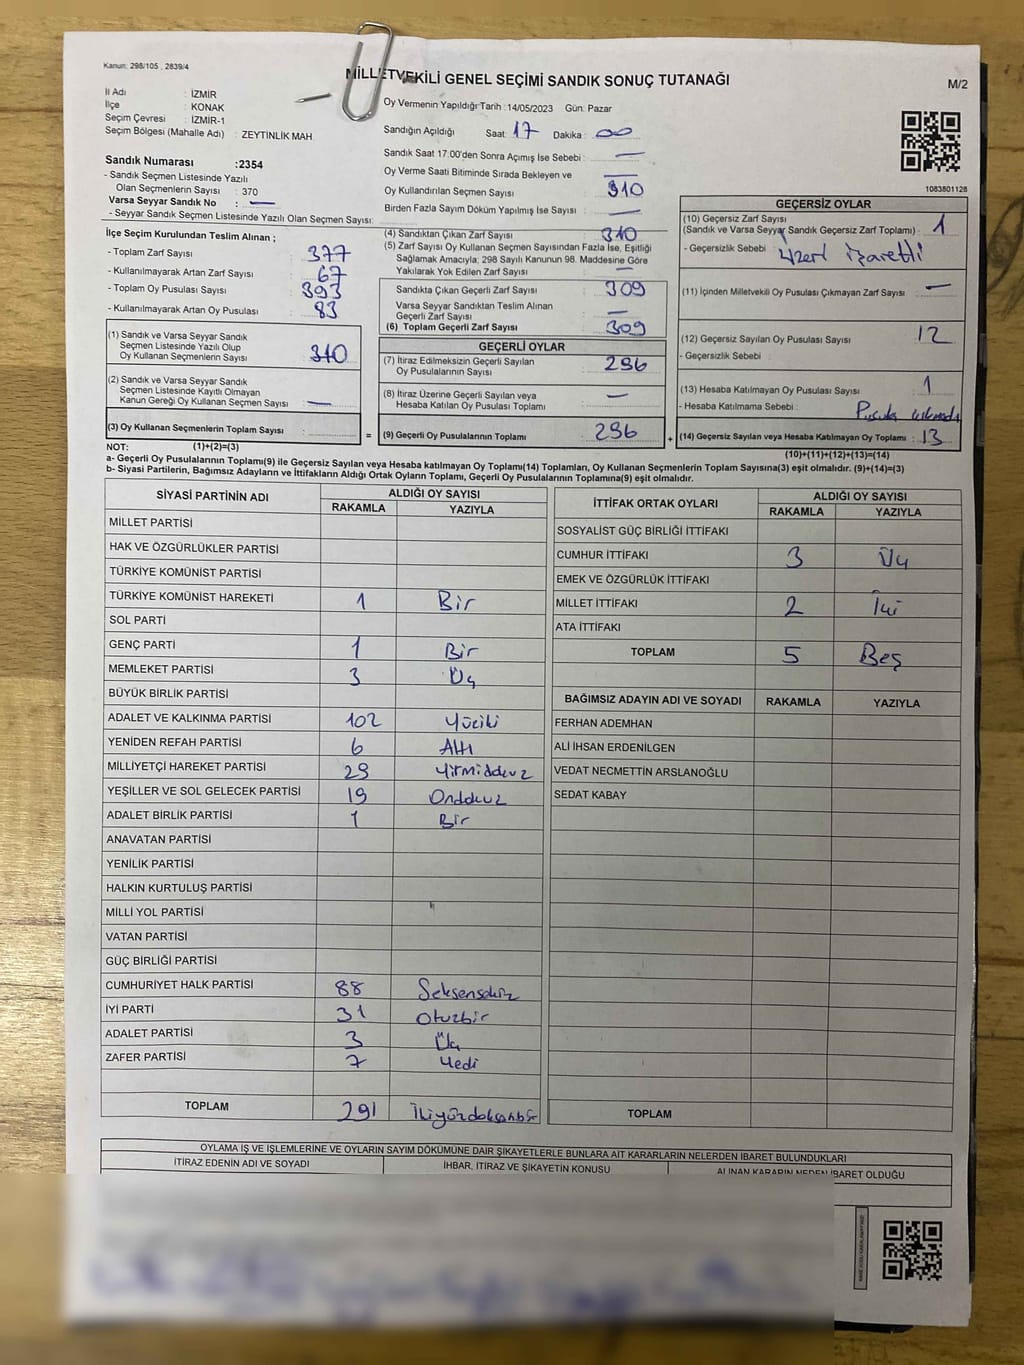 Kanun: 298/105 , 2839/4
MİLLETVEKİLİ GENEL SEÇİMİ SANDIK SONUÇ TUTANAĞI
M/2
İl Adı : İZMİR
İlçe : KONAK
Seçim Çevresi : İZMİR-1
Seçim Bölgesi (Mahalle Adı) : ZEYTİNLİK MAH
Sandık Numarası :2354
- Sandık Seçmen Listesinde Yazılı
Olan Seçmenlerin Sayısı : 370
Varsa Seyyar Sandık No : —
- Seyyar Sandık Seçmen Listesinde Yazılı Olan Seçmen Sayısı:
Oy Vermenin Yapıldığı Tarih : 14/05/2023 Gün: Pazar
Sandığın Açıldığı Saat : 17 Dakika : 00
Sandık Saat 17:00'den Sonra Açımış İse Sebebi : —
Oy Verme Saati Bitiminde Sırada Bekleyen ve —
Oy Kullandırılan Seçmen Sayısı : 310
Birden Fazla Sayım Döküm Yapılmış İse Sayısı : —
1083801128
İlçe Seçim Kurulundan Teslim Alınan ;
- Toplam Zarf Sayısı : 377
- Kullanılmayarak Artan Zarf Sayısı : 67
- Toplam Oy Pusulası Sayısı : 393
- Kullanılmayarak Artan Oy Pusulası : 83
(1) Sandık ve Varsa Seyyar Sandık
Seçmen Listesinde Yazılı Olup
Oy Kullanan Seçmenlerin Sayısı : 310
(2) Sandık ve Varsa Seyyar Sandık
Seçmen Listesinde Kayıtlı Olmayan
Kanun Gereği Oy Kullanan Seçmen Sayısı : —
(3) Oy Kullanan Seçmenlerin Toplam Sayısı :
(4) Sandıktan Çıkan Zarf Sayısı : 310
(5) Zarf Sayısı Oy Kullanan Seçmen Sayısından Fazla İse, Eşitliği
Sağlamak Amacıyla; 298 Sayılı Kanunun 98. Maddesine Göre
Yakılarak Yok Edilen Zarf Sayısı : —
Sandıkta Çıkan Geçerli Zarf Sayısı : 309
Varsa Seyyar Sandıktan Teslim Alınan
Geçerli Zarf Sayısı : —
(6) Toplam Geçerli Zarf Sayısı : 309
GEÇERLİ OYLAR
(7) İtiraz Edilmeksizin Geçerli Sayılan
Oy Pusulalarının Sayısı : 296
(8) İtiraz Üzerine Geçerli Sayılan veya
Hesaba Katılan Oy Pusulası Toplamı : —
= (9) Geçerli Oy Pusulalarının Toplamı : 296 +
GEÇERSİZ OYLAR
(10) Geçersiz Zarf Sayısı
(Sandık ve Varsa Seyyar Sandık Geçersiz Zarf Toplamı) : 1
- Geçersizlik Sebebi : Üzeri işaretli
(11) İçinden Milletvekili Oy Pusulası Çıkmayan Zarf Sayısı : —
(12) Geçersiz Sayılan Oy Pusulası Sayısı : 12
- Geçersizlik Sebebi :
(13) Hesaba Katılmayan Oy Pusulası Sayısı : 1
- Hesaba Katılmama Sebebi : Pusula çıkmadı
(14) Geçersiz Sayılan veya Hesaba Katılmayan Oy Toplamı : 13
NOT: (1)+(2)=(3)
(10)+(11)+(12)+(13)=(14)
a- Geçerli Oy Pusulalarının Toplamı(9) ile Geçersiz Sayılan veya Hesaba katılmayan Oy Toplamı(14) Toplamları, Oy Kullanan Seçmenlerin Toplam Sayısına(3) eşit olmalıdır. (9)+(14)=(3)
b- Siyasi Partilerin, Bağımsız Adayların ve İttifakların Aldığı Ortak Oyların Toplamı, Geçerli Oy Pusulalarının Toplamına(9) eşit olmalıdır.
SİYASİ PARTİNİN ADI ALDIĞI OY SAYISI
RAKAMLA YAZIYLA
MİLLET PARTİSİ
HAK VE ÖZGÜRLÜKLER PARTİSİ
TÜRKİYE KOMÜNİST PARTİSİ
TÜRKİYE KOMÜNİST HAREKETİ 1 Bir
SOL PARTİ
GENÇ PARTİ 1 Bir
MEMLEKET PARTİSİ 3 Üç
BÜYÜK BİRLİK PARTİSİ
ADALET VE KALKINMA PARTİSİ 102 Yüziki
YENİDEN REFAH PARTİSİ 6 Altı
MİLLİYETÇİ HAREKET PARTİSİ 29 Yirmidokuz
YEŞİLLER VE SOL GELECEK PARTİSİ 19 Ondokuz
ADALET BİRLİK PARTİSİ 1 Bir
ANAVATAN PARTİSİ
YENİLİK PARTİSİ
HALKIN KURTULUŞ PARTİSİ
MİLLİ YOL PARTİSİ
VATAN PARTİSİ
GÜÇ BİRLİĞİ PARTİSİ
CUMHURİYET HALK PARTİSİ 88 Seksensekiz
İYİ PARTİ 31 Otuzbir
ADALET PARTİSİ 3 Üç
ZAFER PARTİSİ 7 Yedi
TOPLAM 291 İkiyüzdoksanbir
İTTİFAK ORTAK OYLARI ALDIĞI OY SAYISI
RAKAMLA YAZIYLA
SOSYALİST GÜÇ BİRLİĞİ İTTİFAKI
CUMHUR İTTİFAKI 3 Üç
EMEK VE ÖZGÜRLÜK İTTİFAKI
MİLLET İTTİFAKI 2 İki
ATA İTTİFAKI
TOPLAM 5 Beş
BAĞIMSIZ ADAYIN ADI VE SOYADI RAKAMLA YAZIYLA
FERHAN ADEMHAN
ALİ İHSAN ERDENİLGEN
VEDAT NECMETTİN ARSLANOĞLU
SEDAT KABAY
TOPLAM
OYLAMA İŞ VE İŞLEMLERİNE VE OYLARIN SAYIM DÖKÜMÜNE DAİR ŞİKAYETLERLE BUNLARA AİT KARARLARIN NELERDEN İBARET BULUNDUKLARI
İTİRAZ EDENİN ADI VE SOYADI İHBAR, İTİRAZ VE ŞİKAYETİN KONUSU ALINAN KARARIN NEDEN İBARET OLDUĞU